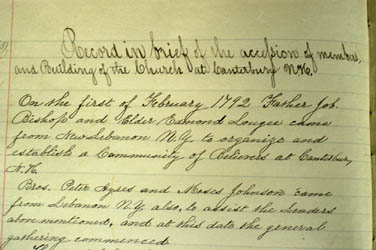 Record in brief of the accession of members,
and Building of the Church at Canterbury N.H.
On the first of February 1792 Father Job
Bishop and Elder Edmond Lougee came
from New Lebanon N.Y. to organize and
establish a Community of Believers at Canterbury,
N.H.
Bros. Peter Ayres and Moses Johnson came
from Lebanon N.Y. also, to assist the Leaders
above mentioned, and at this date the general
gathering commenced